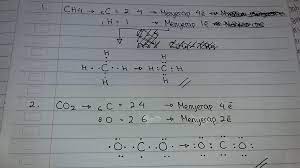 1. CH4 → 6C = 2 4 → Menyerap 4ē
1H = 1 → Menyerap 1ē
H H
H · C · H → H : C : H
H H
2. CO2 → 6C = 2 4 → Menyerap 4ē
8O = 2 6 → Menyerap 2ē
O C O → O C O